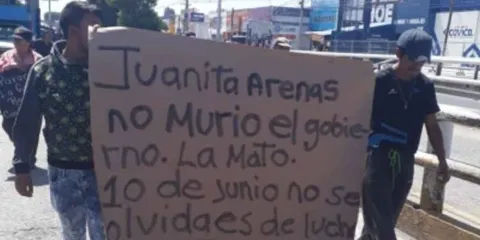 Juanita Arenas
no Murio el gobie-
rno. La Mato.
10 de junio no se
olvida es de lucha